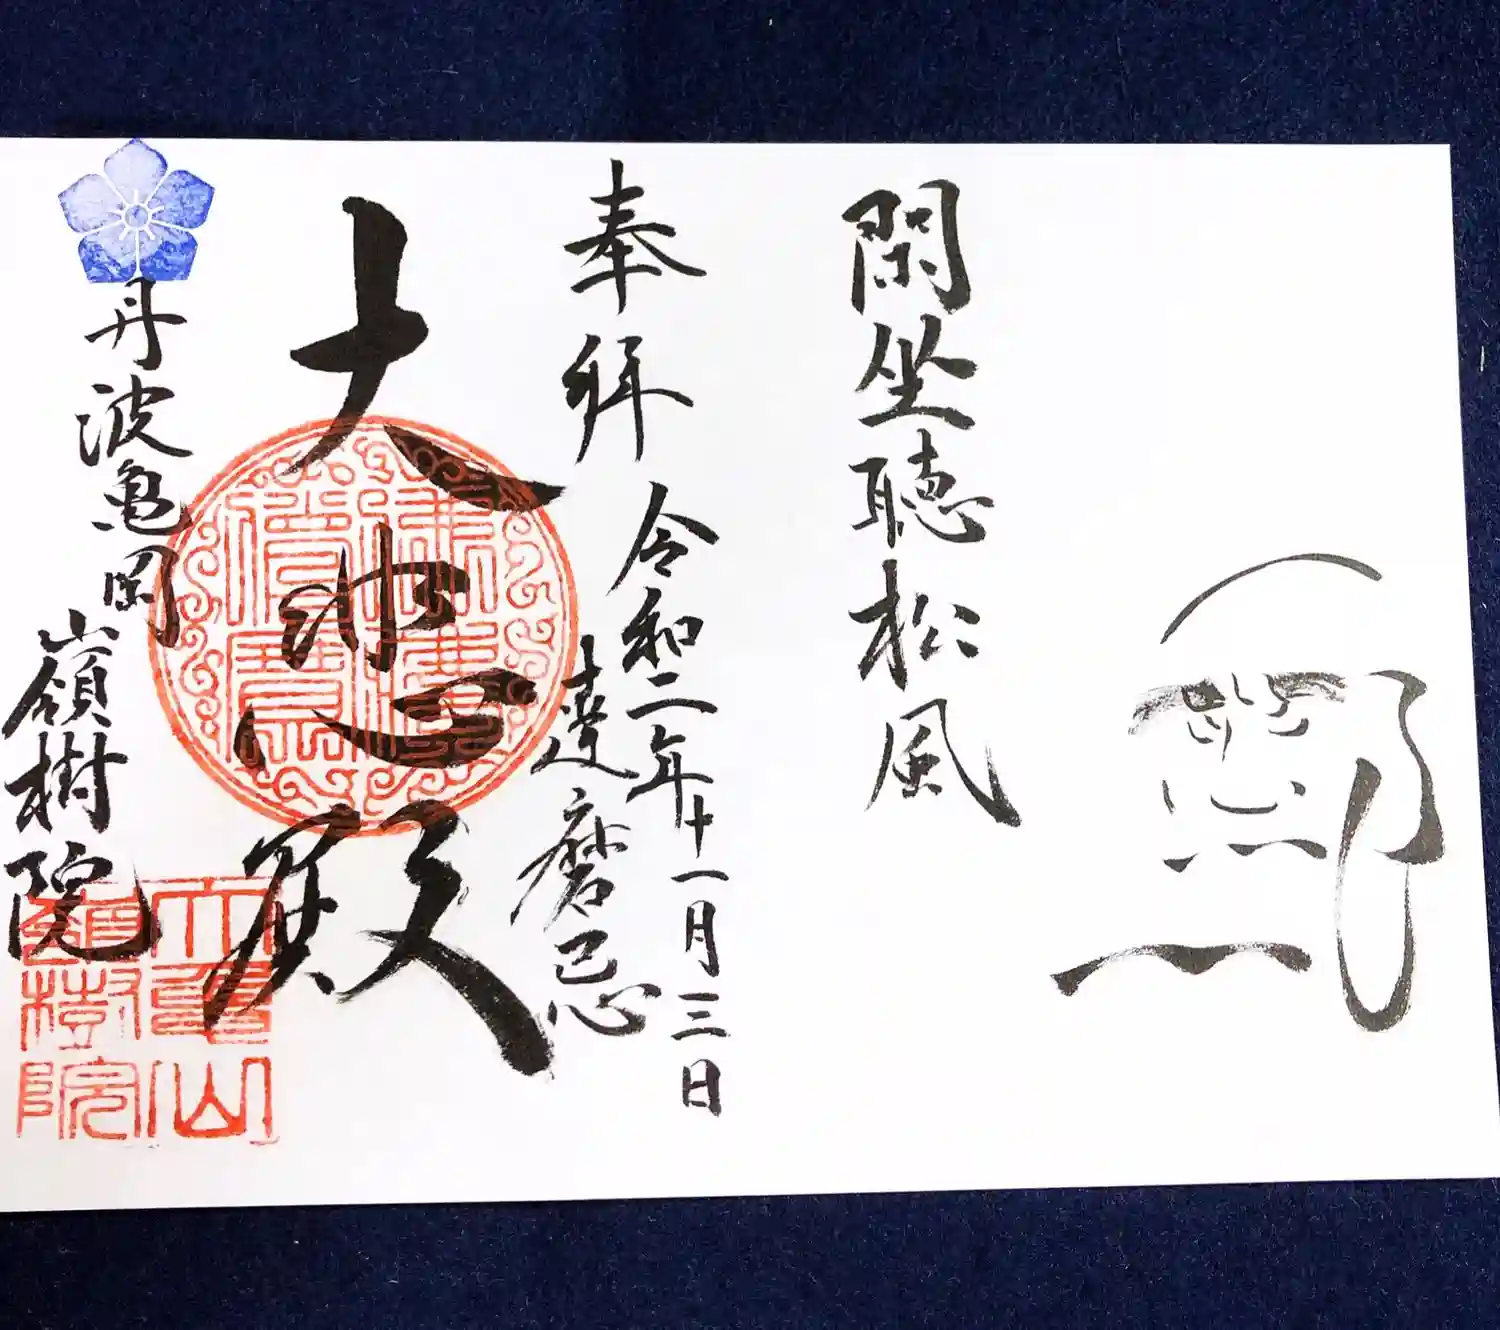 閑坐聴松風
奉拝
令和二年十一月三日
達磨忌
大悲殿
丹波亀岡
嶺樹院
大亀山
嶺樹院